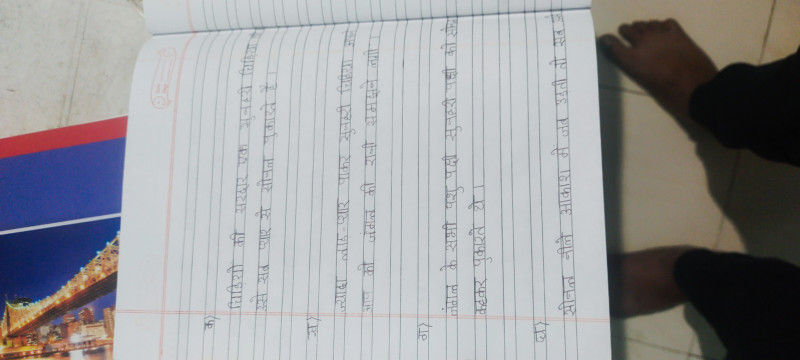 क)
चिड़ियों की सरदार एक सुनहरी चिड़िया
उसे सब प्यार से सोनल पुकारते हैं।
ख)
ज्यादा लाड-प्यार पाकर सुनहरी चिड़िया
आप को जंगल की रानी समझने लगी।
ग)
जंगल के सभी पशु पक्षी सुनहरी पक्षी को
कहकर पुकारते थे।
घ)
सोनल नीले आकाश में जब उड़ती तो सब